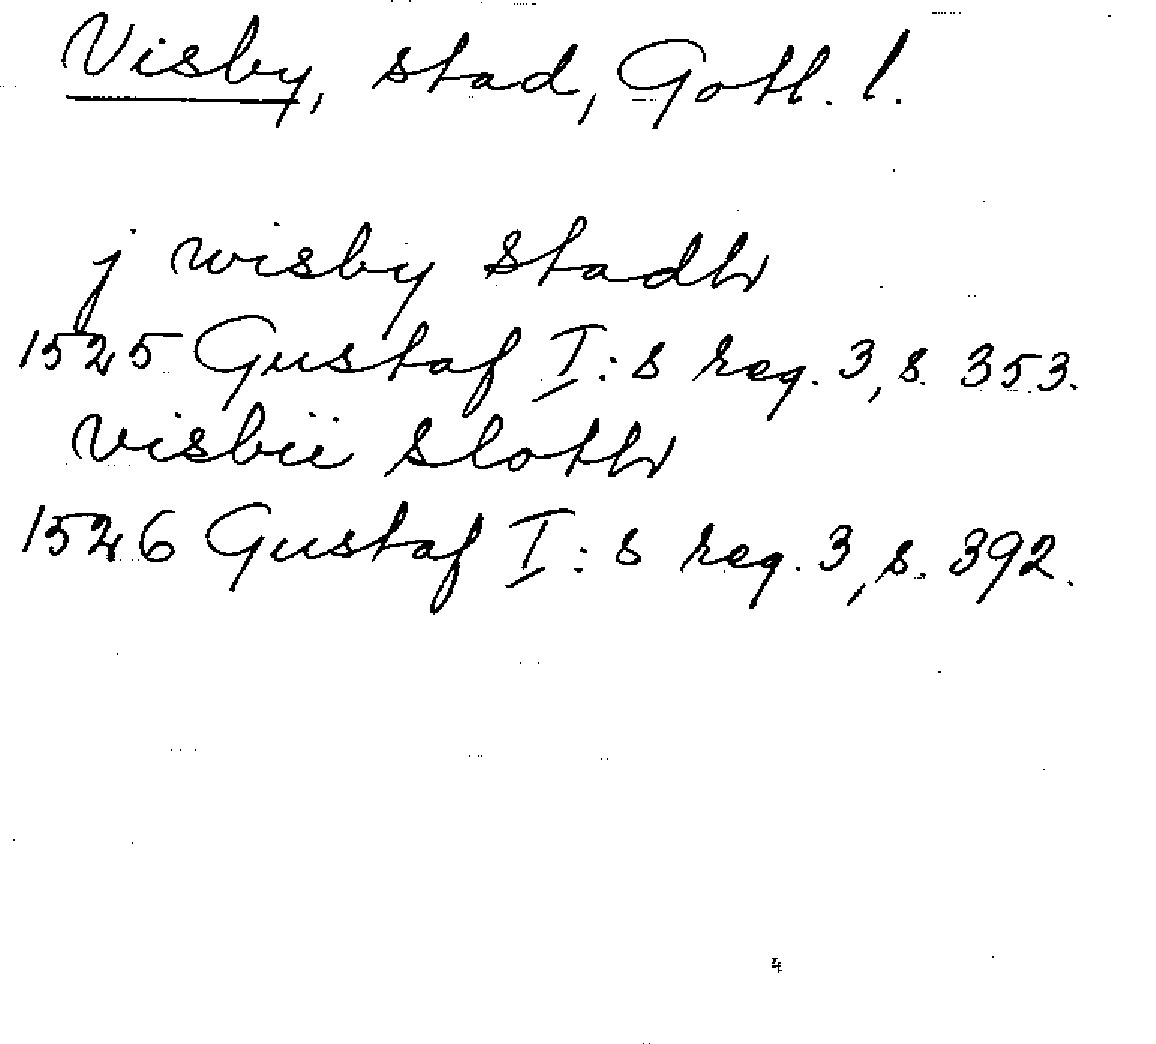 Visby, stad, Gotl. l.
j wisby stadh
1525 Gustaf I:s reg. 3, s. 353.
visbii sloth
1526 Gustaf I:s reg. 3, s. 392.